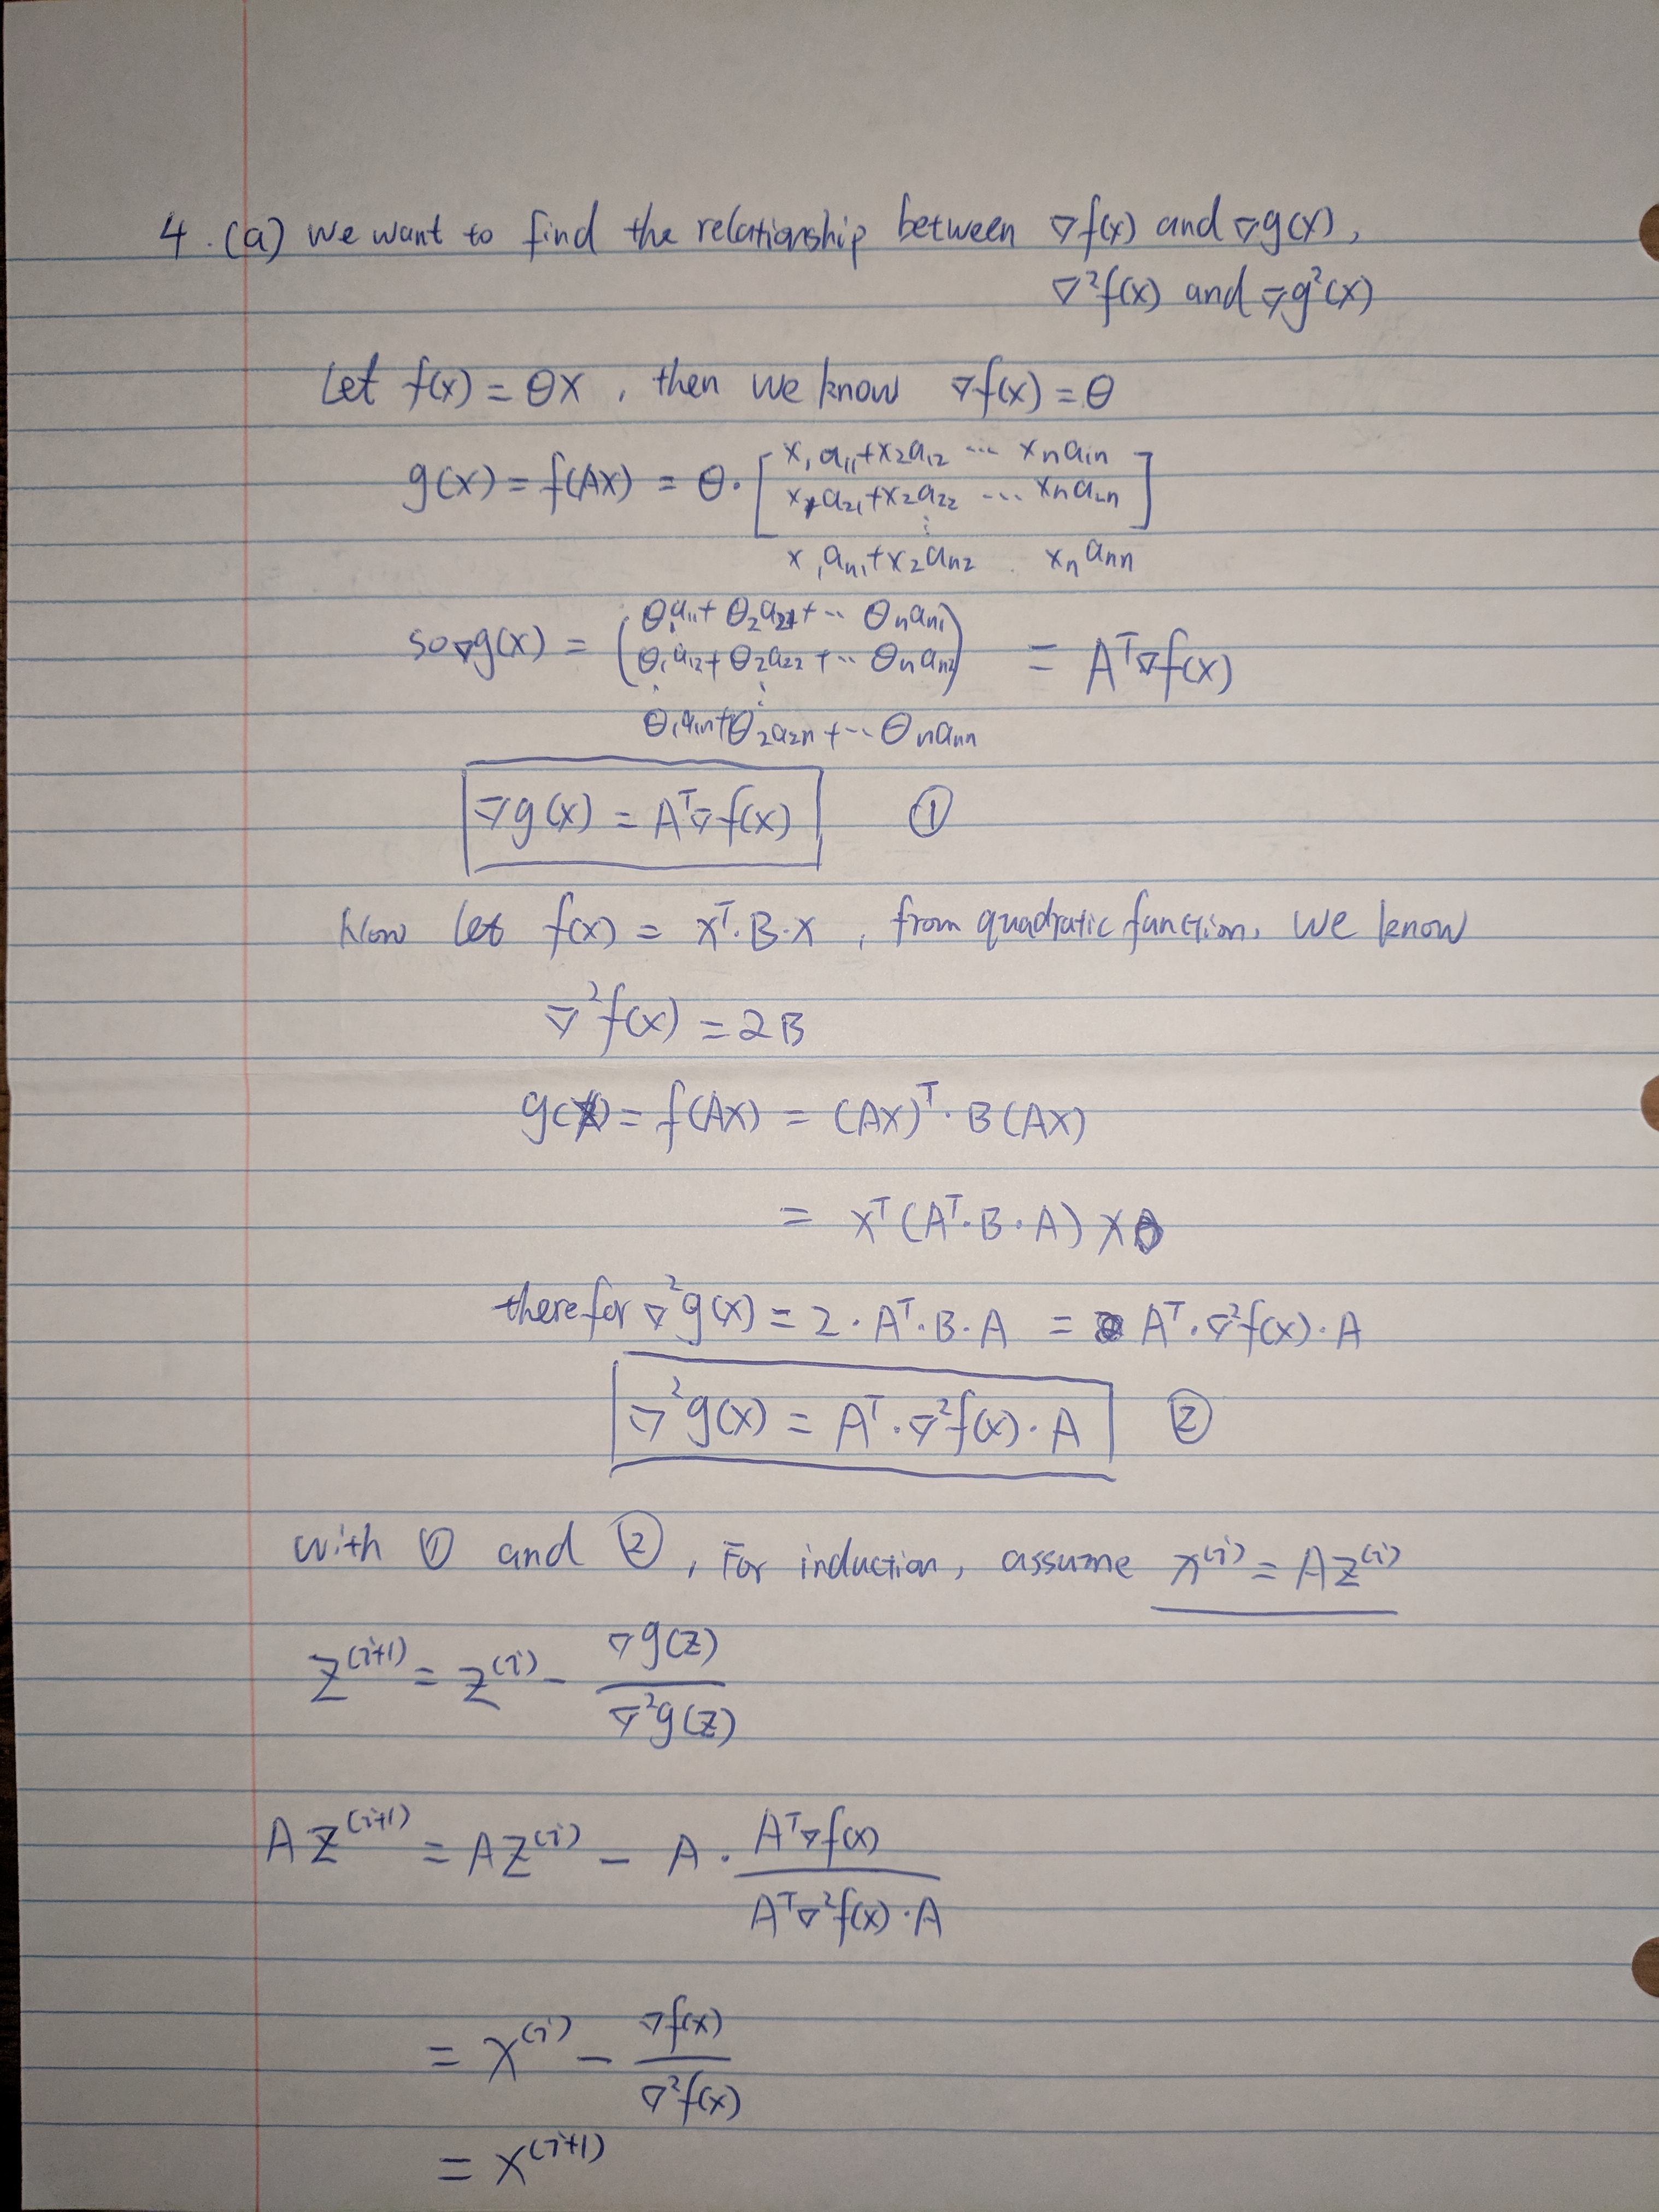 4. (a) we want to find the relationship between ∇f(x) and ∇g(x),
∇²f(x) and ∇g²(x)
Let f(x) = θx , then we know ∇f(x) = θ
g(x) = f(Ax) = θ · [ x₁a₁₁+x₂a₁₂ ... xₙa₁ₙ
x₁a₂₁+x₂a₂₂ ... xₙa₂ₙ ]
⋮
x₁aₙ₁+x₂aₙ₂ xₙaₙₙ
so ∇g(x) = ( θ₁a₁₁+ θ₂a₂₁+ ... θₙaₙ₁
θ₁a₁₂+ θ₂a₂₂ + ... θₙaₙ₂ ) = Aᵀ∇f(x)
⋮
θ₁a₁ₙ+θ₂a₂ₙ + ... θₙaₙₙ
∇g(x) = Aᵀ∇f(x) ①
Now let f(x) = xᵀ·B·x , from quadratic function, we know
∇²f(x) = 2B
g(x) = f(Ax) = (Ax)ᵀ · B(Ax)
= xᵀ(Aᵀ·B·A) x
therefor ∇²g(x) = 2·Aᵀ·B·A = Aᵀ·∇²f(x)·A
∇²g(x) = Aᵀ·∇²f(x)·A ②
with ① and ②, For induction, assume x⁽ⁱ⁾ = Az⁽ⁱ⁾
z⁽ⁱ⁺¹⁾ = z⁽ⁱ⁾ - ∇g(z) / ∇²g(z)
Az⁽ⁱ⁺¹⁾ = Az⁽ⁱ⁾ - A · Aᵀ∇f(x) / Aᵀ∇²f(x)·A
= x⁽ⁱ⁾ - ∇f(x) / ∇²f(x)
= x⁽ⁱ⁺¹⁾